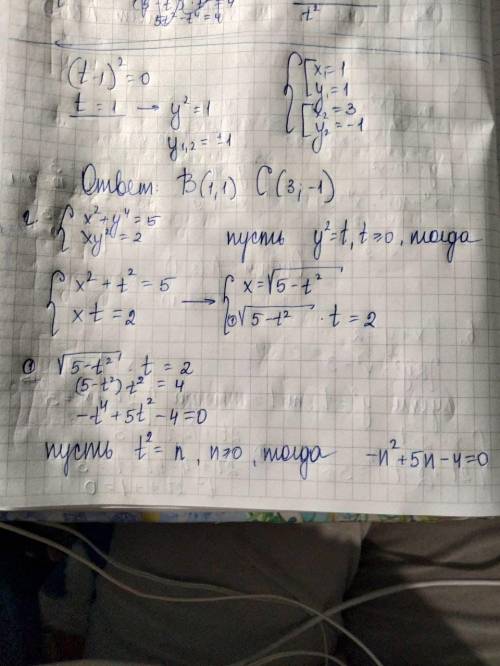 5t² - t⁴ = 4
t²
(t-1)² = 0
t = 1 → y² = 1
y₁,₂ = ±1
{ [ x₁ = 1
y₁ = 1
[ x₂ = 3
y₂ = -1
Ответ: B(1,1) C(3;-1)
2. { x² + y⁴ = 5
xy² = 2
пусть y² = t, t ≥ 0, тогда
{ x² + t² = 5
xt = 2
→ { x = √5-t²
① √5-t² · t = 2
① √5-t² · t = 2
(5-t²) t² = 4
-t⁴ + 5t² - 4 = 0
пусть t² = n, n ≥ 0, тогда -n² + 5n - 4 = 0